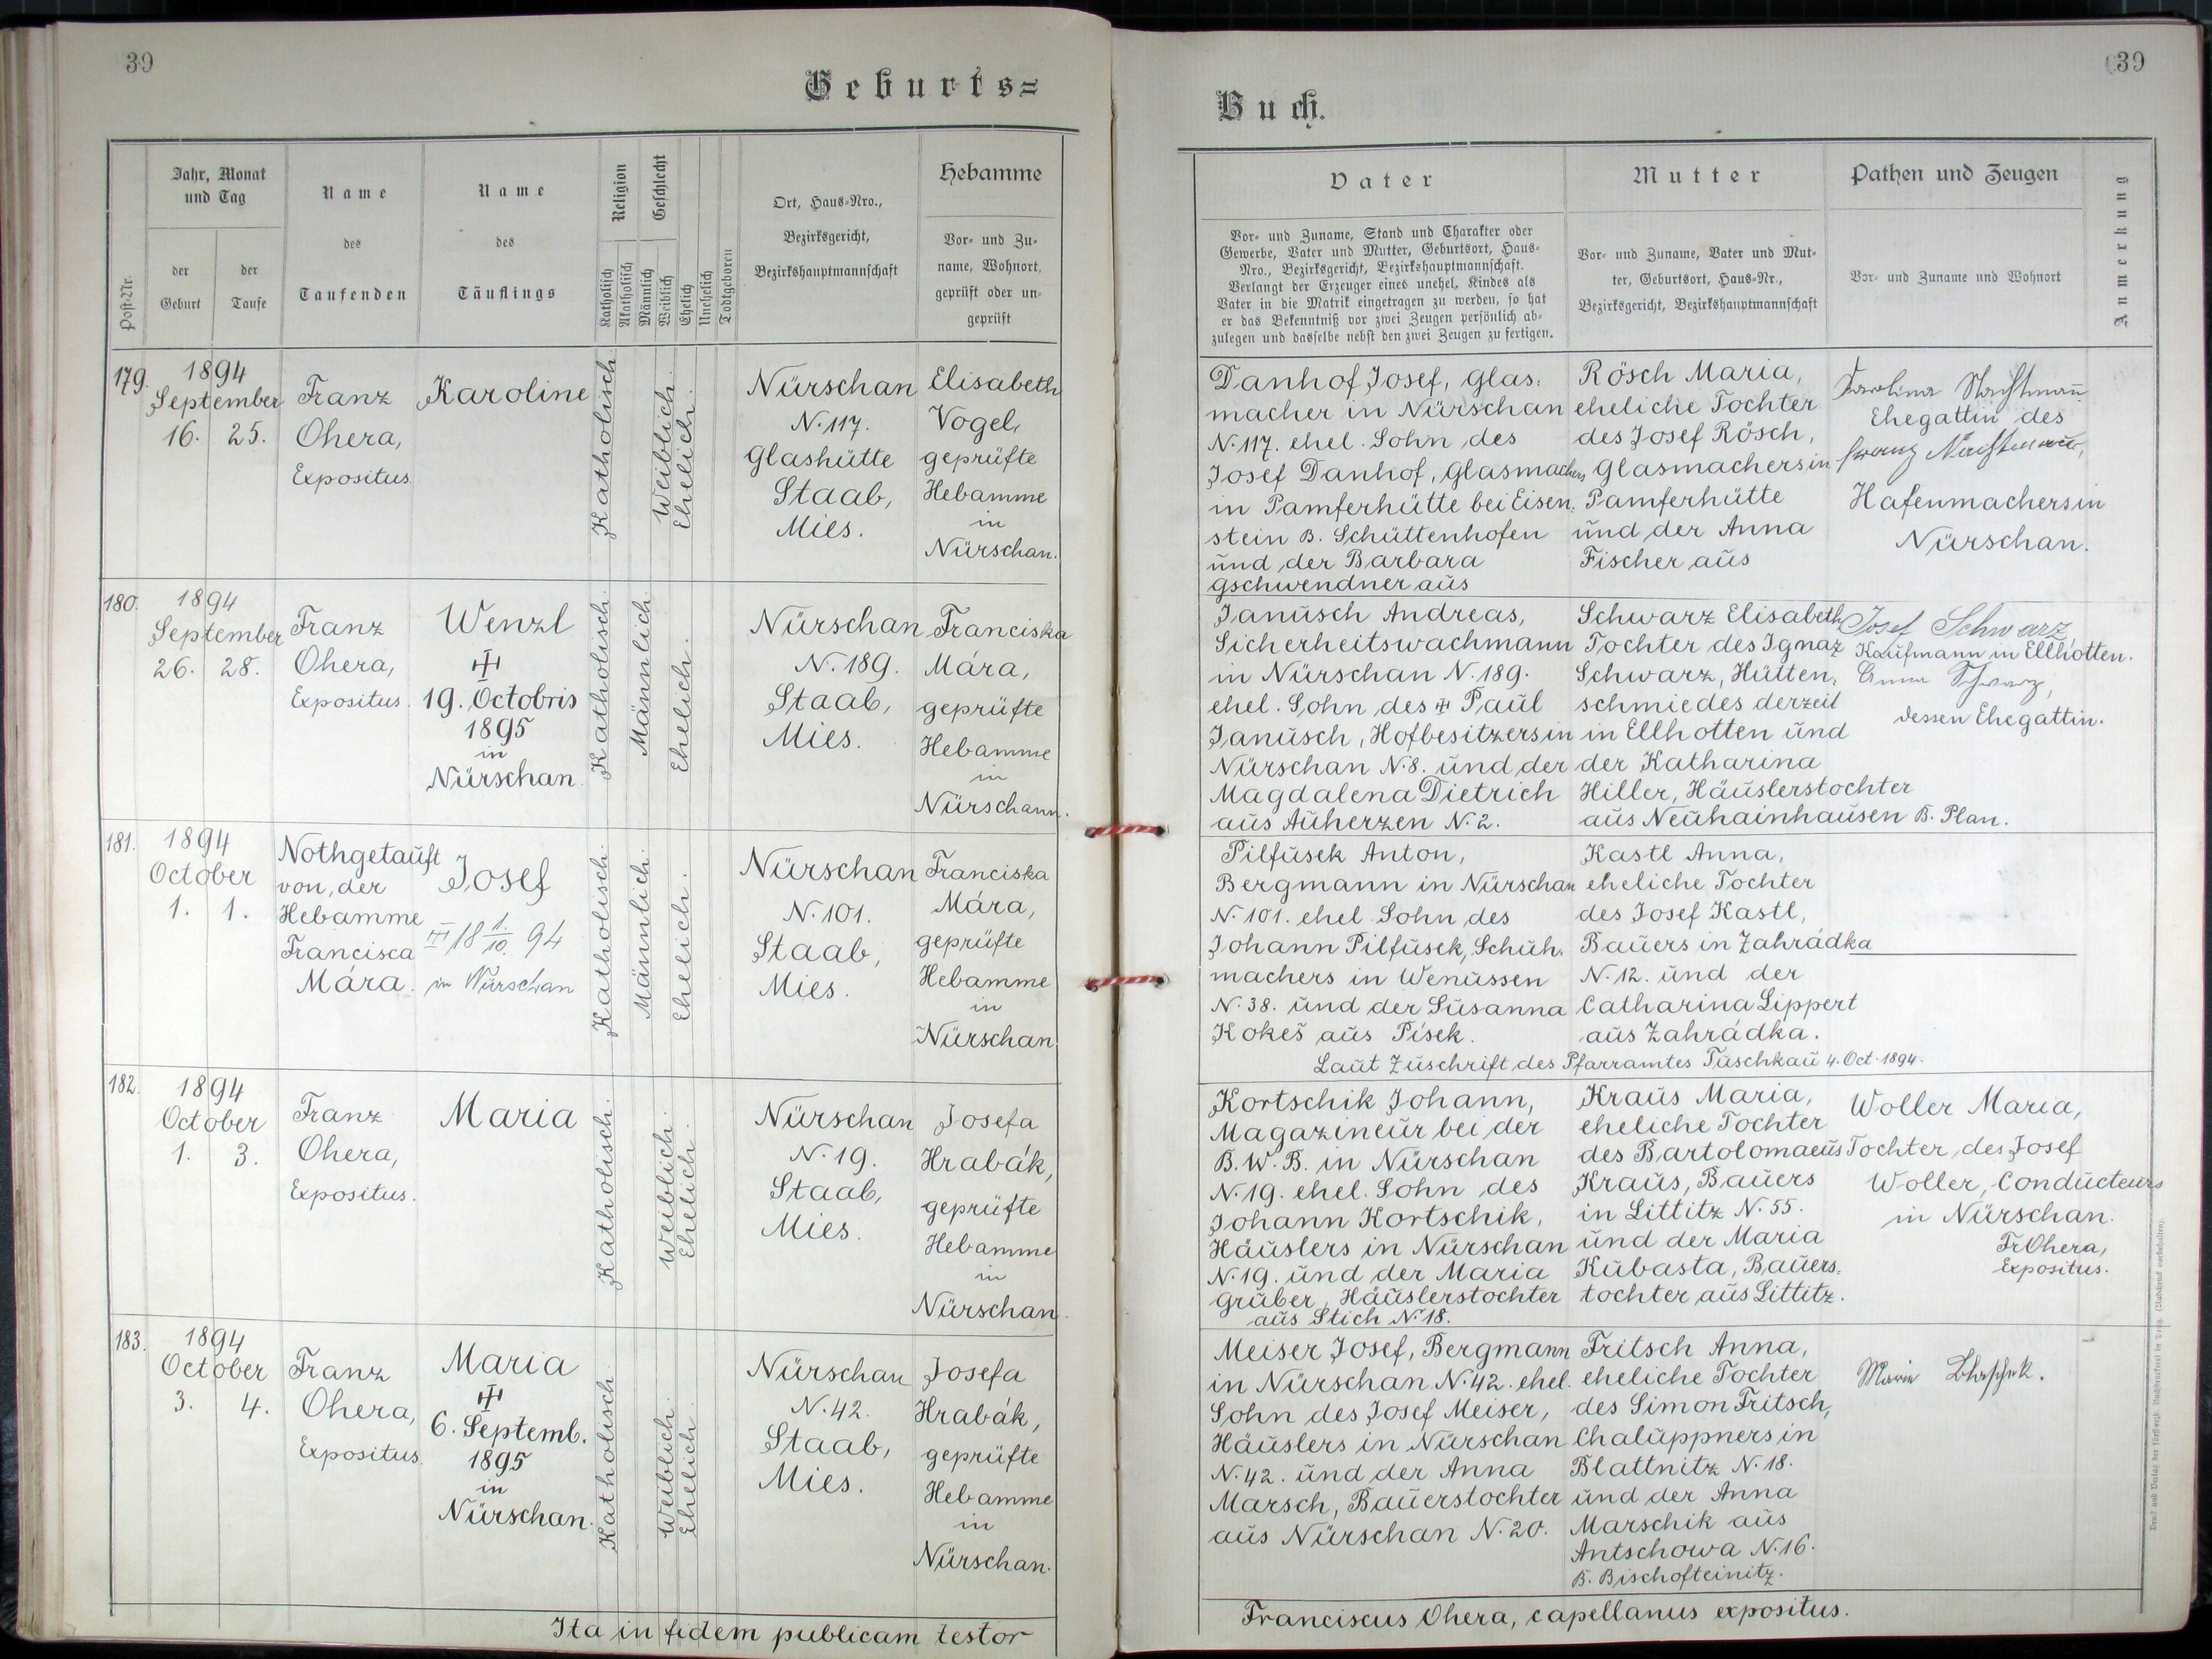 39
Geburts=
Jahr, Monat
und Tag
Name
Name
Religion
Geschlecht
Ort, Haus=Nro.,
Hebamme
des
des
Bezirksgericht,
Vor= und Zu=
name, Wohnort,
geprüft oder un=
geprüft
Post-Nr.
der
Geburt
der
Taufe
Taufenden
Täuflings
Katholisch
Akatholisch
Männlich
Weiblich
Ehelich
Unehelich
Todtgeboren
Bezirkshauptmannschaft
179.
1894
September
16. 25.
Franz
Ohera,
Expositus
Karoline
Katholisch
Weiblich.
Ehelich.
Nürschan
N. 117.
Glashütte
Staab,
Mies.
Elisabeth
Vogel,
geprüfte
Hebamme
in
Nürschan.
180.
1894
September
26. 28.
Franz
Ohera,
Expositus.
Wenzl
19. Octobris
1895
in
Nürschan
Katholisch.
Männlich.
Ehelich.
Nürschan
N. 189.
Staab,
Mies.
Franciska
Mára,
geprüfte
Hebamme
in
Nürschann.
181.
1894
October
1. 1.
Nothgetauft
von der
Hebamme
Francisca
Mára.
Josef
18 1./10. 94
in Nürschan
Katholisch.
Männlich.
Ehelich.
Nürschan
N. 101.
Staab,
Mies.
Franciska
Mára,
geprüfte
Hebamme
in
Nürschan
182.
1894
October
1. 3.
Franz
Ohera,
Expositus.
Maria
Katholisch.
Weiblich.
Ehelich.
Nürschan
N. 19.
Staab,
Mies.
Josefa
Hrabák,
geprüfte
Hebamme
in
Nürschan.
183.
1894
October
3. 4.
Franz
Ohera,
Expositus.
Maria
6. Septemb.
1895
in
Nürschan.
Katholisch
Weiblich.
Ehelich.
Nürschan
N. 42.
Staab,
Mies.
Josefa
Hrabák,
geprüfte
Hebamme
in
Nürschan.
Ita in fidem publicam testor
39
Buch.
Vater
Mutter
Pathen und Zeugen
Anmerkung
Vor= und Zuname, Stand und Charakter oder
Gewerbe, Vater und Mutter, Geburtsort, Haus=
Nro., Bezirksgericht, Bezirkshauptmannschaft.
Verlangt der Erzeuger eines unehel. Kindes als
Vater in die Matrik eingetragen zu werden, so hat
er das Bekenntniß vor zwei Zeugen persönlich ab=
zulegen und dasselbe nebst den zwei Zeugen zu fertigen.
Vor= und Zuname, Vater und Mut=
ter, Geburtsort, Haus=Nr.,
Bezirksgericht, Bezirkshauptmannschaft
Vor= und Zuname und Wohnort
Danhof Josef, Glas=
macher in Nürschan
N. 117. ehel. Sohn des
Josef Danhof, Glasmachers
in Pamferhütte bei Eisen=
stein B. Schüttenhofen
und der Barbara
Gschwendner aus
Rösch Maria,
eheliche Tochter
des Josef Rösch,
Glasmachers in
Pamferhütte
und der Anna
Fischer aus
Karolina
Ehegattin des
Franz
Hafenmachers in
Nürschan.
Janusch Andreas,
Sicherheitswachmann
in Nürschan N. 189.
ehel. Sohn des Paul
Janusch, Hofbesitzers in
Nürschan N. 8. und der
Magdalena Dietrich
aus Auherzen N. 2.
Schwarz Elisabeth
Tochter des Ignaz
Schwarz, Hütten=
schmiedes derzeit
in Ellhotten und
der Katharina
Hiller, Häuslerstochter
aus Neuhainhausen B. Plan.
Josef Schwarz
Kaufmann in Ellhotten.
Anna Schwarz,
dessen Ehegattin.
Pilfusek Anton,
Bergmann in Nürschan
N. 101. ehel. Sohn des
Johann Pilfusek, Schuh=
machers in Wenussen
N. 38. und der Susanna
Kokeš aus Písek.
Kastl Anna,
eheliche Tochter
des Josef Kastl,
Bauers in Zahrádka
N. 12. und der
Catharina Lippert
aus Zahrádka.
Laut Zuschrift des Pfarramtes Tuschkau 4. Oct. 1894.
Kortschik Johann,
Magazineur bei der
B. W. B. in Nürschan
N. 19. ehel. Sohn des
Johann Kortschik,
Häuslers in Nürschan
N. 19. und der Maria
Gruber, Häuslerstochter
aus Stich N. 18.
Kraus Maria,
eheliche Tochter
des Bartolomaeus
Kraus, Bauers
in Littitz N. 55.
und der Maria
Kubasta, Bauers=
tochter aus Littitz.
Woller Maria,
Tochter des Josef
Woller, Conducteurs
in Nürschan.
Fr Ohera,
Expositus.
Meiser Josef, Bergmann
in Nürschan N. 42. ehel.
Sohn des Josef Meiser,
Häuslers in Nürschan
N. 42. und der Anna
Marsch, Bauerstochter
aus Nürschan N. 20.
Fritsch Anna,
eheliche Tochter
des Simon Fritsch,
Chaluppners in
Blattnitz N. 18.
und der Anna
Marschik aus
Antschowa N. 16.
B. Bischofteinitz.
Maria
Franciscus Ohera, capellanus expositus.